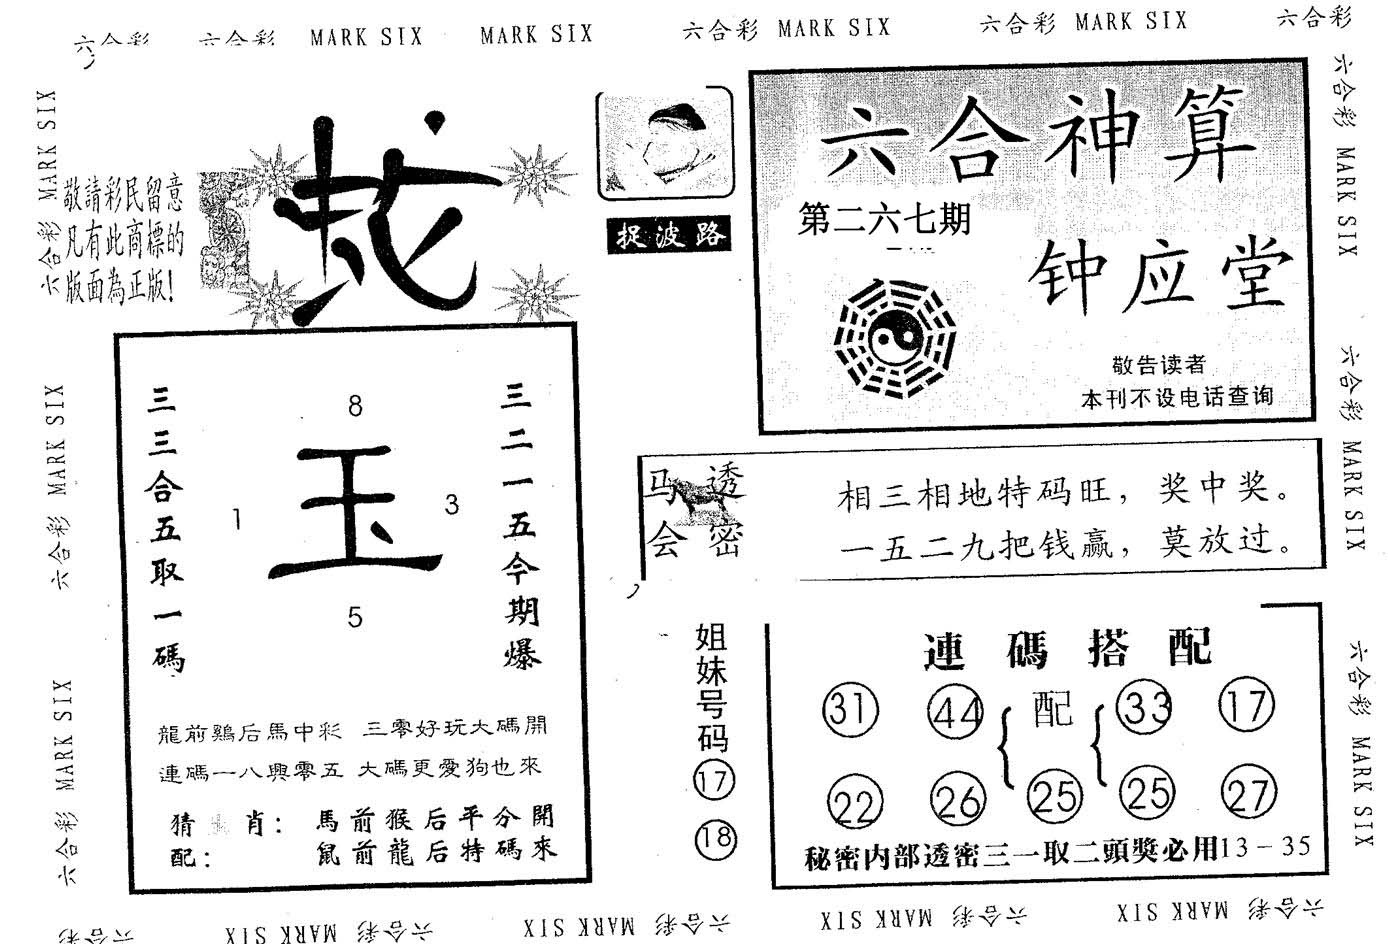 六合彩 六合彩 MARK SIX MARK SIX 六合彩 MARK SIX 六合彩 MARK SIX 六合彩
六合彩 MARK SIX
六合彩 MARK SIX
六合彩 MARK SIX
敬請彩民留意
凡有此商標的
版面為正版!
捉波路
六合神算
第二六七期
钟应堂
敬告读者
本刊不设电话查询
三三合五取一碼
8
1
玉
3
5
三二一五今期爆
龍前鷄后馬中彩 三零好玩大碼開
連碼一八興零五 大碼更愛狗也來
猜 肖: 馬前猴后平分開
配: 鼠前龍后特碼來
马会
透密
相三相地特码旺,奖中奖。
一五二九把钱赢,莫放过。
姐妹号码
17
18
連碼搭配
31 44 配 33 17
22 26 25 25 27
秘密内部透密三一取二頭獎必用13-35
六合彩 MARK SIX
六合彩 MARK SIX
六合彩 MARK SIX
六合彩 六合彩 MARK SIX 六合彩 MARK SIX 六合彩 MARK SIX 六合彩 MARK SIX